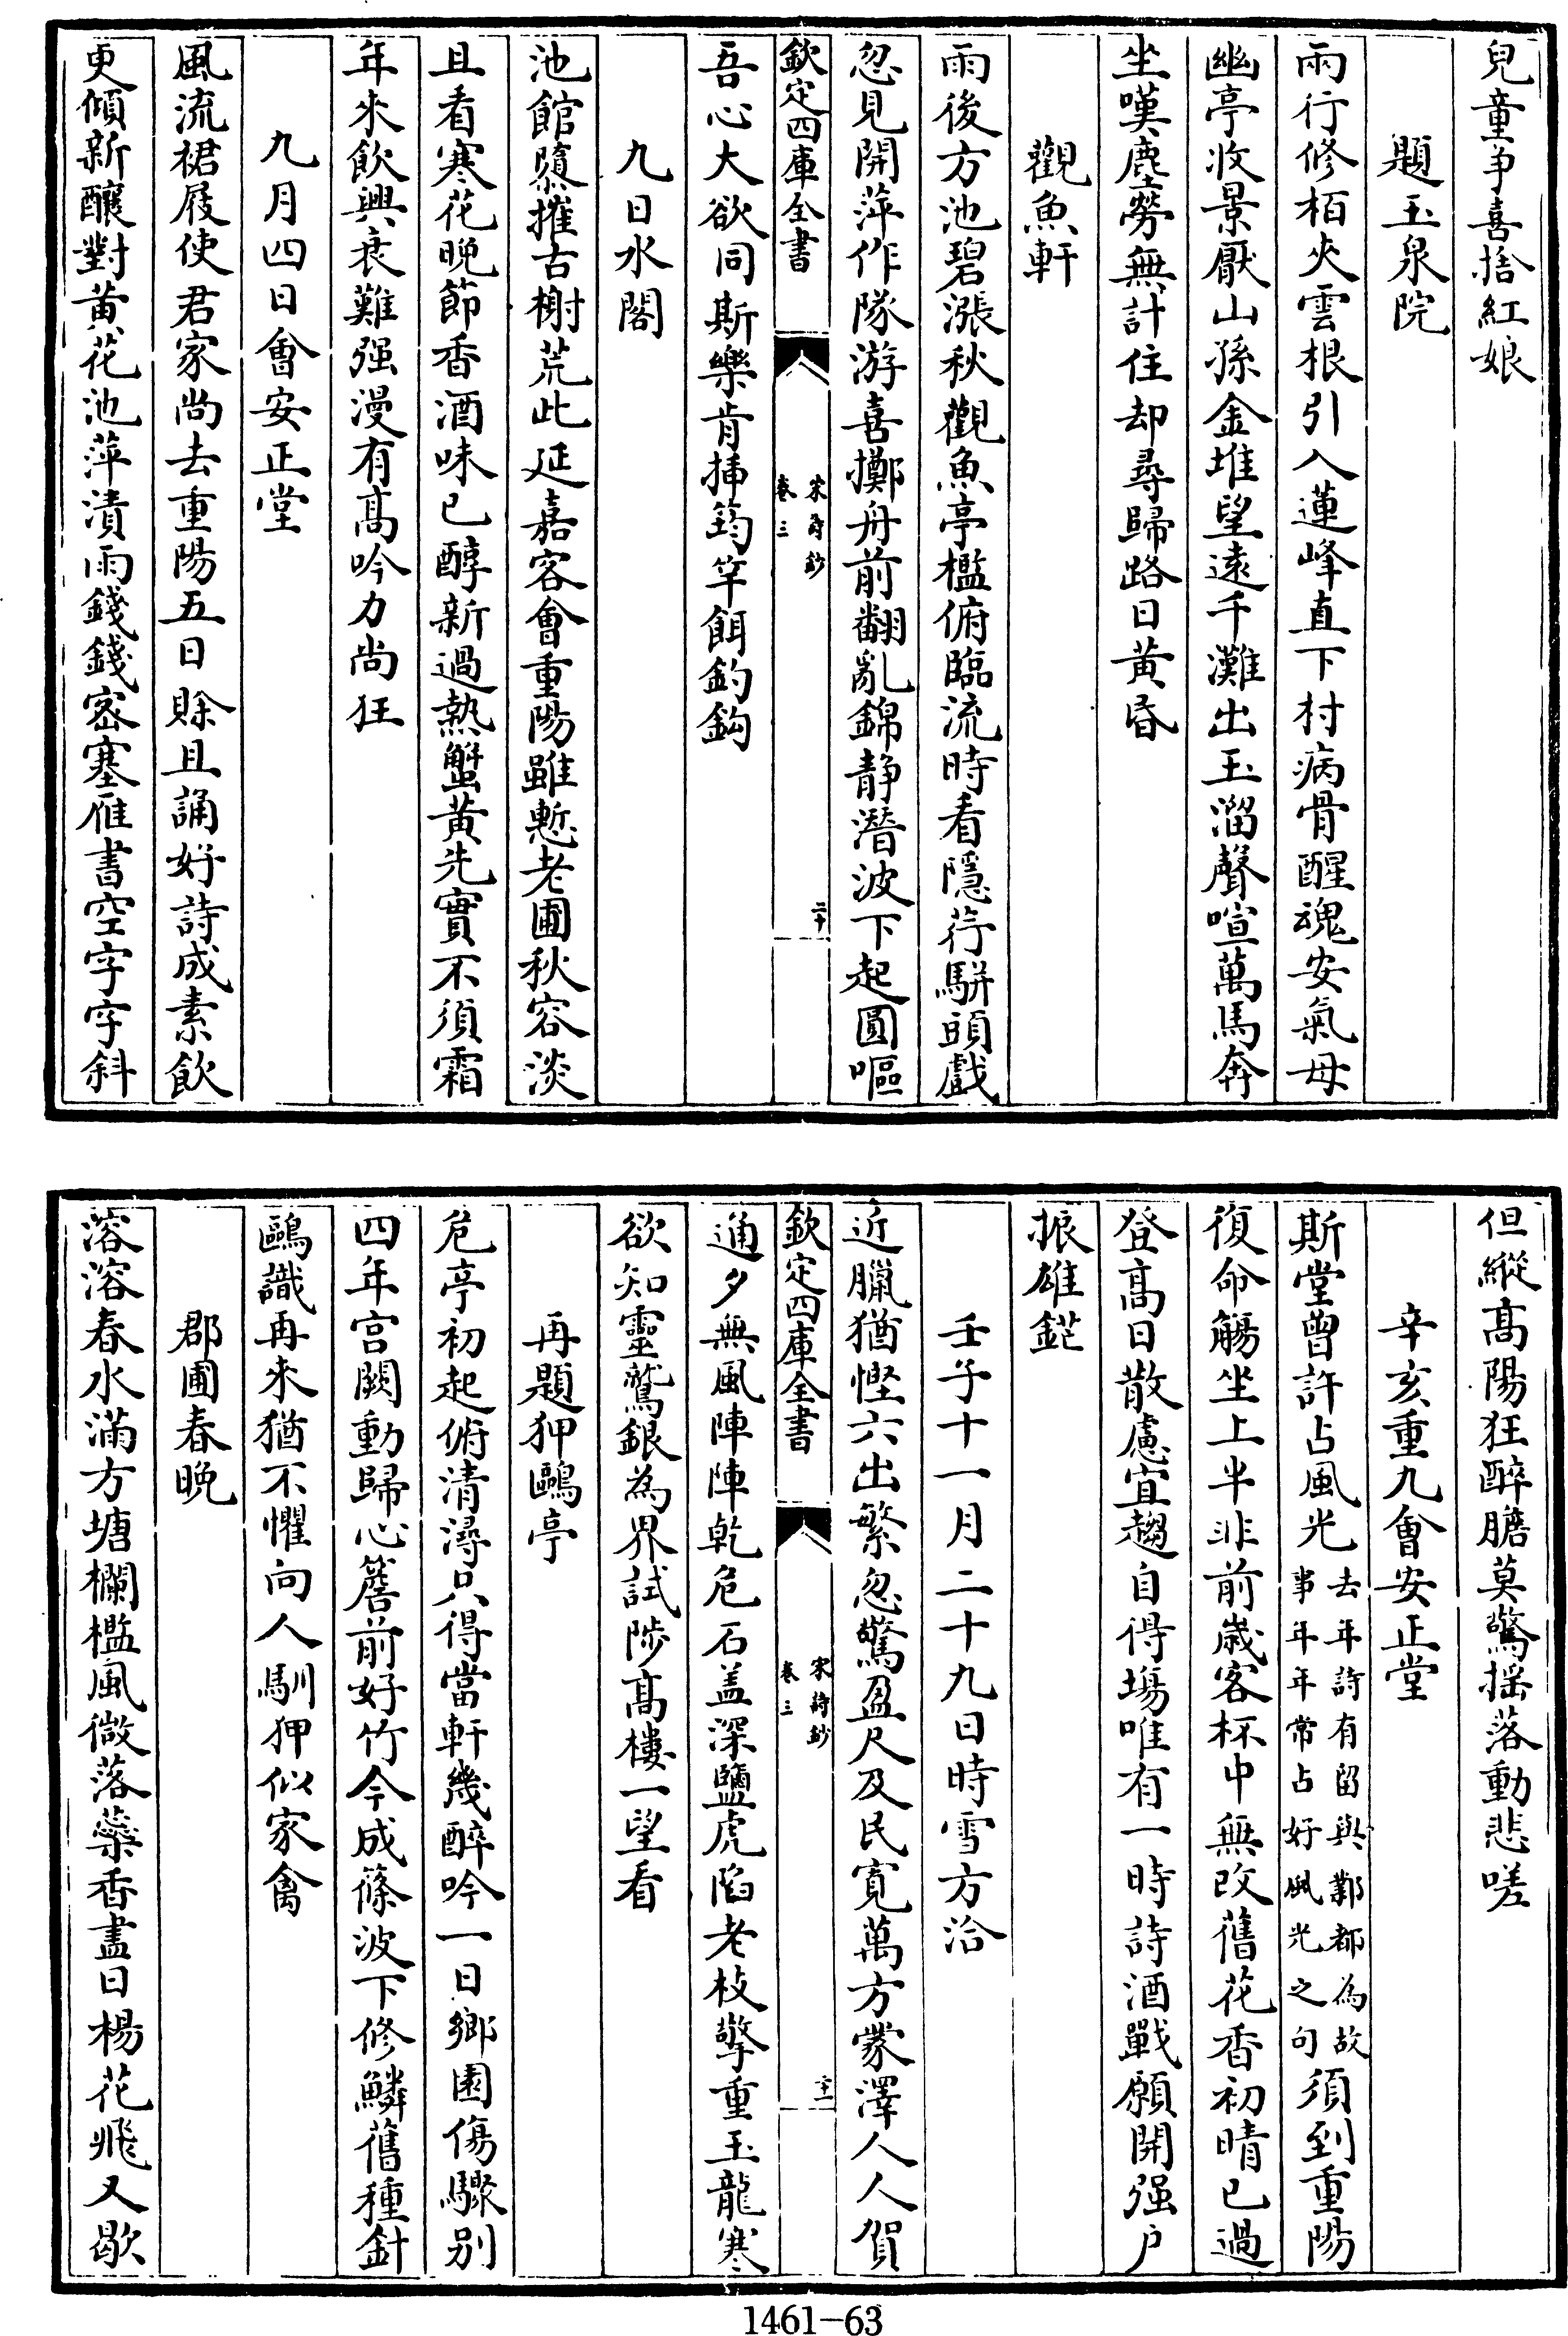 兒童爭喜捨紅娘
題玉泉院
兩行修栢夾雲根引入蓮峰直下村病骨醒魂安氣母
幽亭收景厭山孫金堆望遠千灘出玉溜聲喧萬馬奔
坐嘆塵勞無計住却尋歸路日黃昏
觀魚軒
雨後方池碧漲秋觀魚亭檻俯臨流時看隱荇駢頭戲
忽見開萍作隊游喜擲舟前翻亂錦靜潛波下起圓嘔
欽定四庫全書
宋詩鈔
卷三
二十
吾心大欲同斯樂肯插筠竿餌釣鈎
九日水閣
池館隳摧古榭荒此延嘉客會重陽雖慙老圃秋容淡
且看寒花晚節香酒味已醇新過熱蟹黃先實不須霜
年來飲興衰難强漫有髙吟力尚狂
九月四日會安正堂
風流裙屐使君家尚去重陽五日賒且誦好詩成素飲
更傾新釀對黃花池萍漬雨錢錢密塞雁書空字字斜
但縱髙陽狂醉膽莫驚揺落動悲嗟
辛亥重九會安正堂
斯堂曾許占風光去年詩有留與鄴都為故事年年常占好風光之句須到重陽
復命觴坐上半非前歲客杯中無改舊花香初晴已過
登髙日散慮宜趨自得場唯有一時詩酒戰願開强戶
振雄鋩
壬子十一月二十九日時雪方洽
近臘猶慳六出繁忽驚盈尺及民寬萬方蒙澤人人賀
欽定四庫全書
宋詩鈔
卷三
二十一
通夕無風陣陣乾危石盖深鹽虎陷老枝擎重玉龍寒
欲知靈鷲銀為界試陟髙樓一望看
再題狎鷗亭
危亭初起俯清潯只得當軒幾醉吟一日鄉園傷驟别
四年宫闕動歸心簷前好竹今成篠波下修鱗舊種針
鷗識再來猶不懼向人馴狎似家禽
郡圃春晚
溶溶春水滿方塘欄檻風微落蘂香盡日楊花飛又歇
1461-63